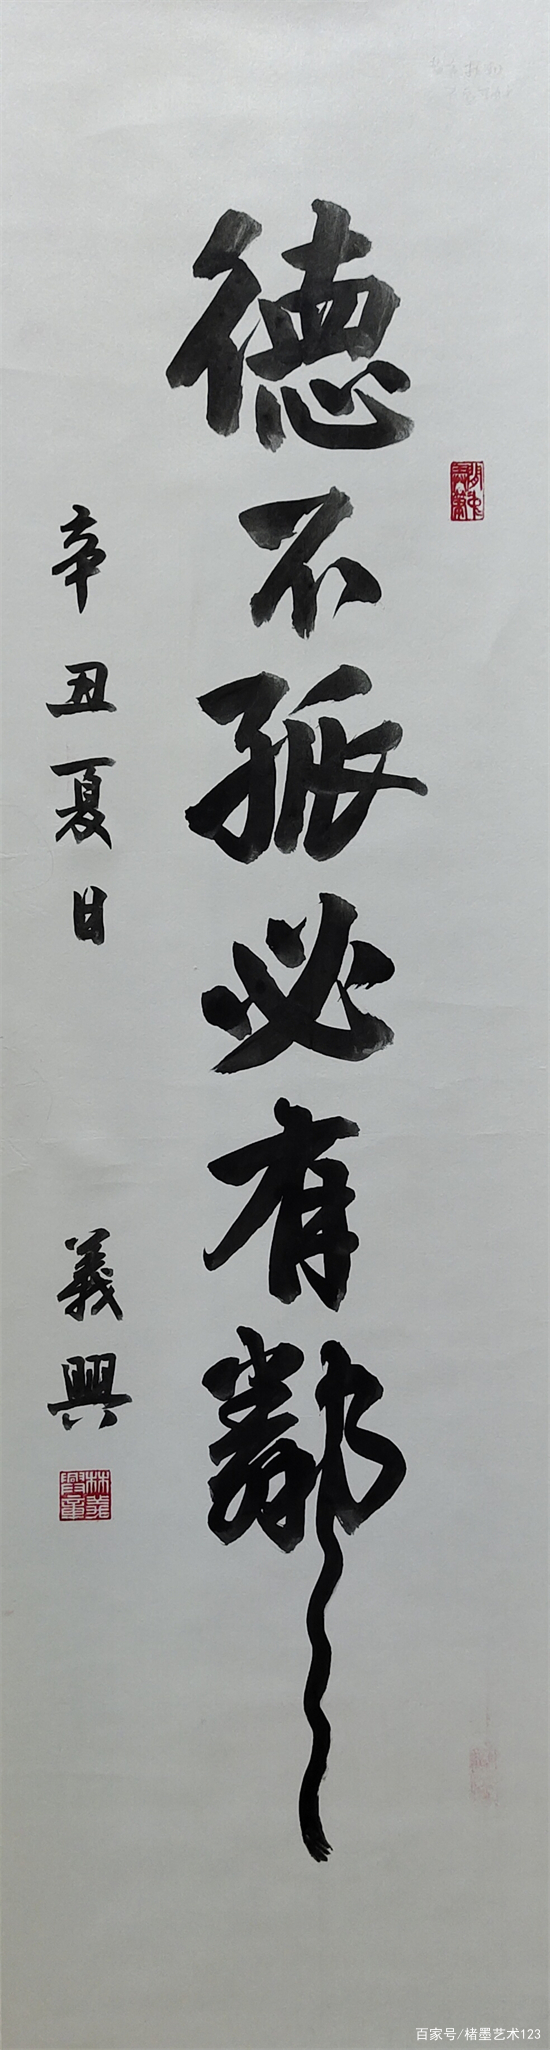 德不孤必有鄰
辛丑夏日 義興
百家号/楮墨艺术123